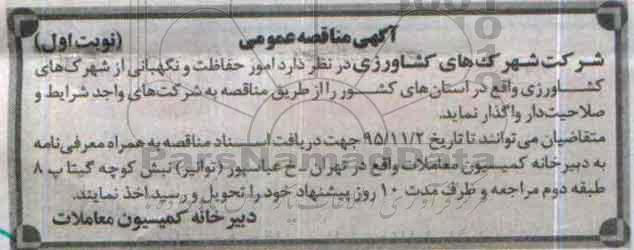 آگهی مناقصه عمومی (نوبت اول)
شرکت شهرک‌های کشاورزی در نظر دارد امور حفاظت و نگهبانی از شهرک‌های
کشاورزی واقع در استان‌های کشور را از طریق مناقصه به شرکت‌های واجد شرایط و
صلاحیت‌دار واگذار نماید.
متقاضیان می‌توانند تا تاریخ ۹۵/۱۱/۲ جهت دریافت اسناد مناقصه به همراه معرفی‌نامه
به دبیرخانه کمیسیون معاملات واقع در تهران ـ خ عباسپور (توانیر) نبش کوچه گیتا پ ۸
طبقه دوم مراجعه و ظرف مدت ۱۰ روز پیشنهاد خود را تحویل و رسید اخذ نمایند.
دبیرخانه کمیسیون معاملات
ParsNamadData